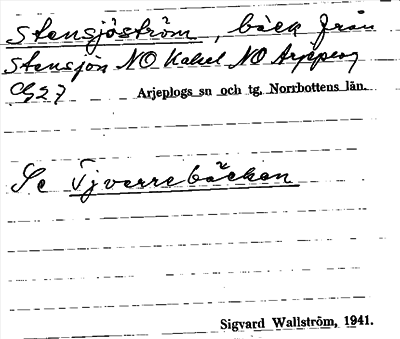 Stensjöström, bäck från
Stensjön NO Kakel NO Arjeplog
C27 Arjeplogs sn och tg, Norrbottens län.
Se Tjverrebäcken
Sigvard Wallström, 1941.